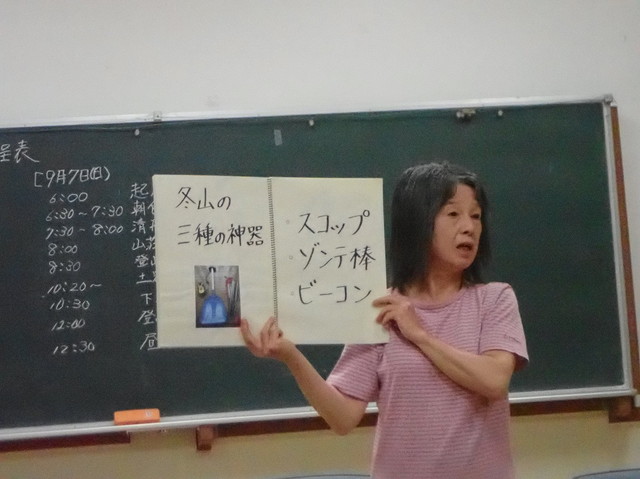 程表
[9月7日(日)
6:00 起
6:30~7:30 朝
7:30~8:00 清
8:00 山
8:30 登
10:20~ 土
10:30 下
12:00 登
12:30 昼
冬山の
三種の神器
スコップ
ゾンテ棒
ビーコン